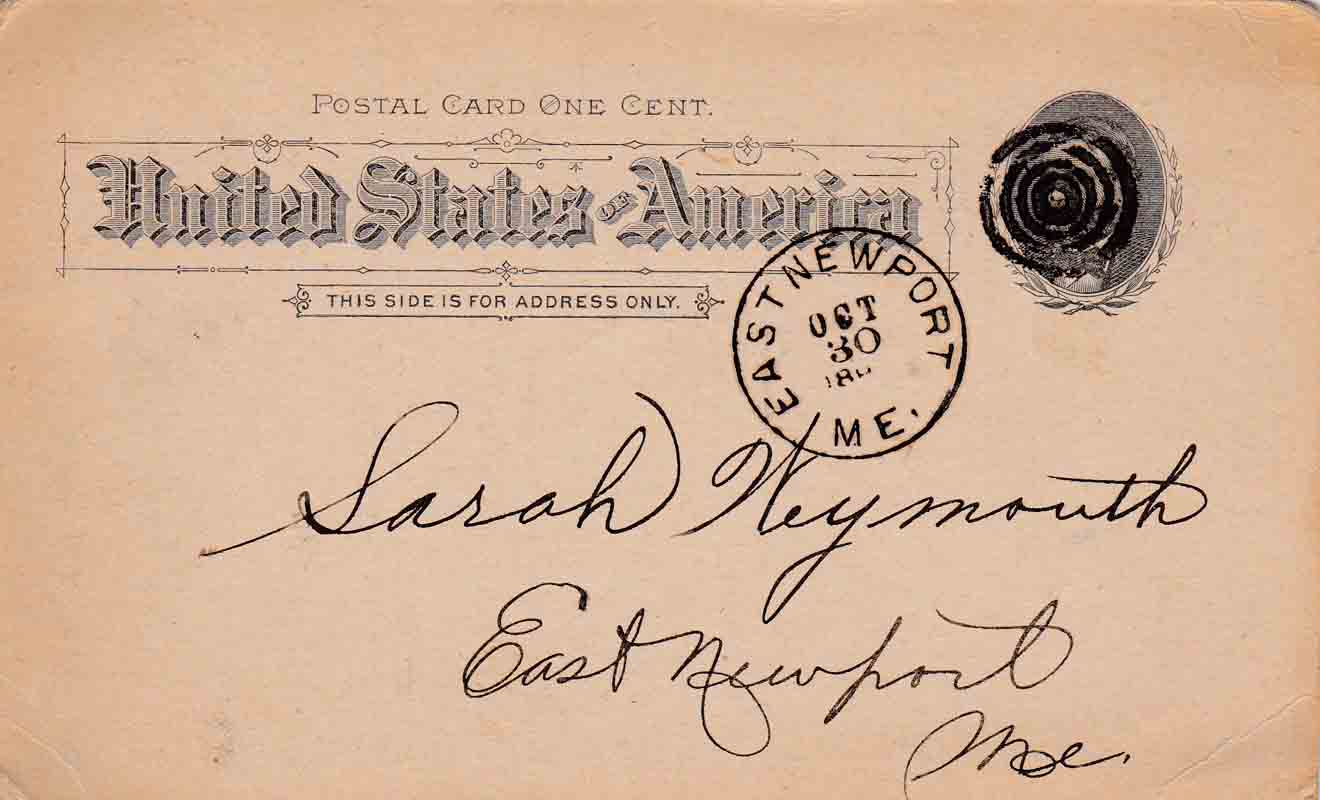 POSTAL CARD ONE CENT.
United States OF America
THIS SIDE IS FOR ADDRESS ONLY.
EAST NEWPORT
OCT
30
ME.
Sarah Weymouth
East Newport
Me.